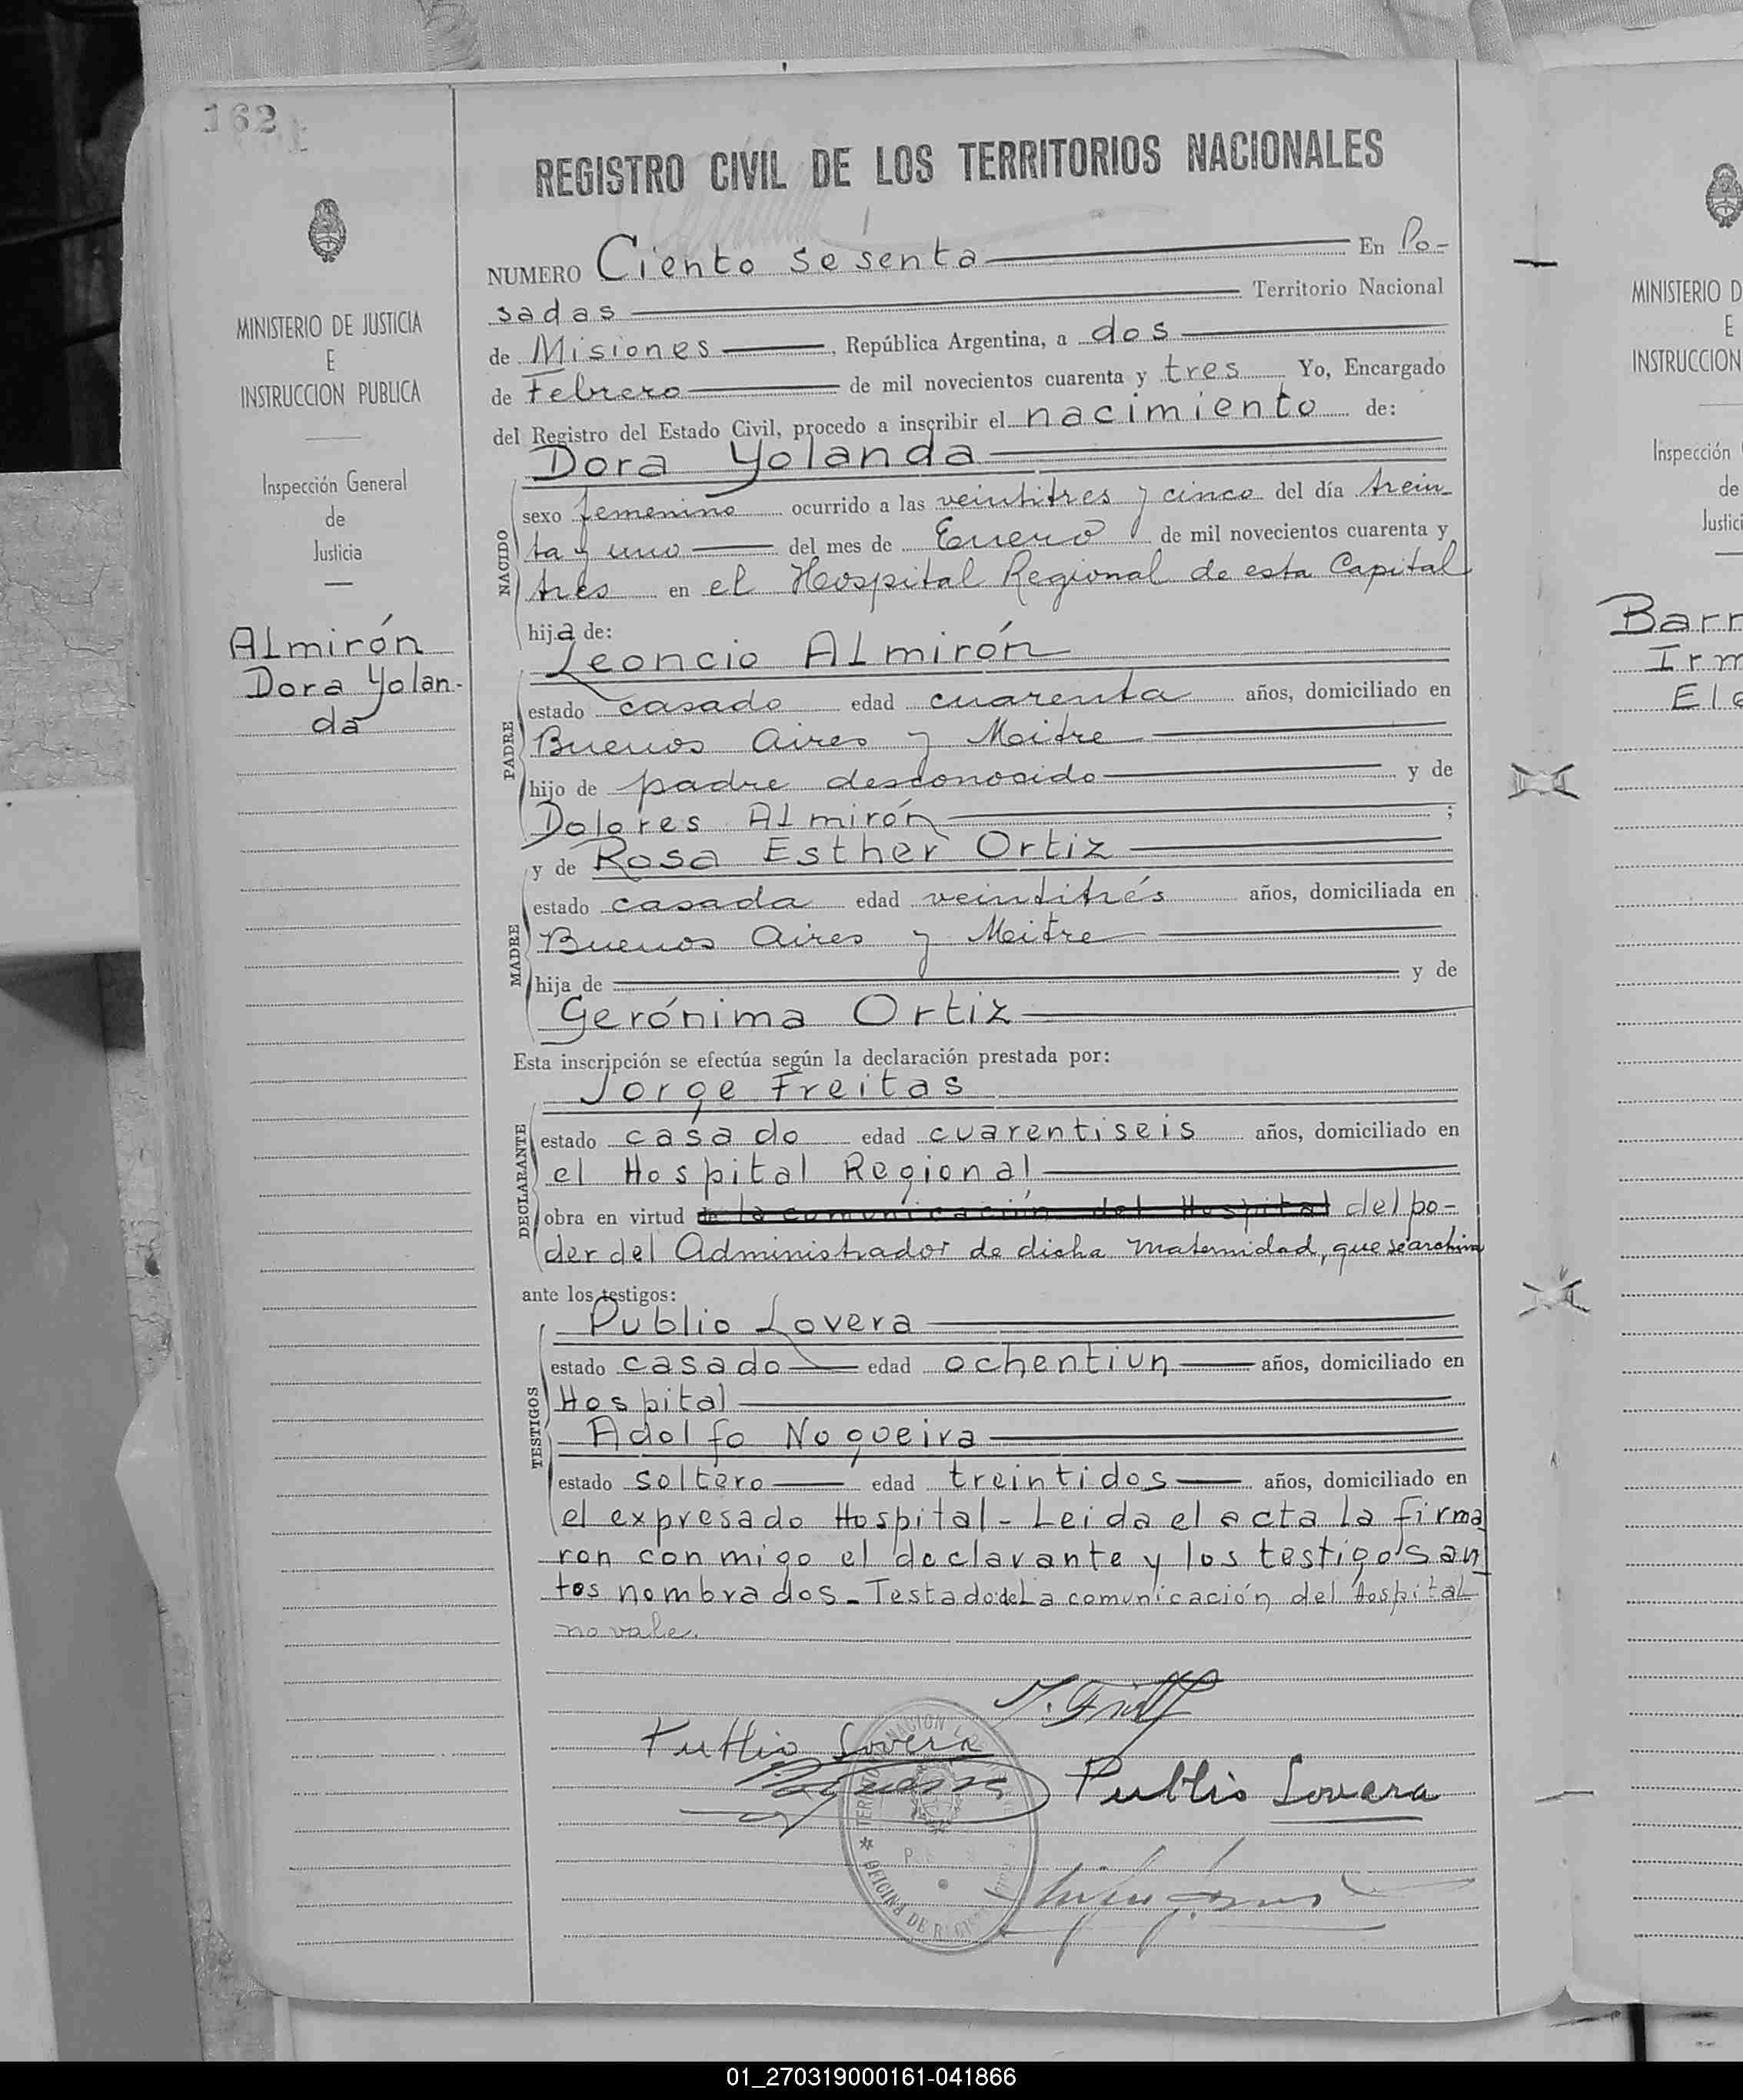 162
REGISTRO CIVIL DE LOS TERRITORIOS NACIONALES
MINISTERIO DE JUSTICIA
E
INSTRUCCION PUBLICA
Inspección General
de
Justicia
Almirón
Dora Yolan-
da
NUMERO Ciento sesenta En Po-
sadas Territorio Nacional
de Misiones, República Argentina, a dos
de Febrero de mil novecientos cuarenta y tres Yo, Encargado
del Registro del Estado Civil, procedo a inscribir el nacimiento de:
Dora Yolanda
NACIDO
sexo femenino ocurrido a las veintitres y cinco del día trein-
ta y uno del mes de Enero de mil novecientos cuarenta y
tres en el Hospital Regional de esta Capital
hija de:
Leoncio Almirón
PADRE
estado casado edad cuarenta años, domiciliado en
Buenos Aires y Mitre
hijo de padre desconocido y de
Dolores Almirón ;
y de Rosa Esther Ortiz
MADRE
estado casada edad veintitrés años, domiciliada en
Buenos Aires y Mitre
hija de y de
Gerónima Ortiz
Esta inscripción se efectúa según la declaración prestada por:
Jorge Freitas
DECLARANTE
estado casado edad cuarentiseis años, domiciliado en
el Hospital Regional
obra en virtud de la comunicación del Hospital del po-
der del Administrador de dicha Maternidad, que se archiva
ante los testigos:
Publio Lovera
TESTIGOS
estado casado edad ochentiun años, domiciliado en
Hospital
Adolfo Nogueira
estado soltero edad treintidos años, domiciliado en
el expresado Hospital - Leida el acta la firma
ron con migo el declarante y los testigos an
tos nombrados - Testado: de La comunicación del Hospital
no vale.
Publio Lovera
Publio Lovera
OFICINA DE
MINISTERIO D
E
INSTRUCCION
Inspección
de
Justici
Barr
Irm
Ele
01_270319000161-041866